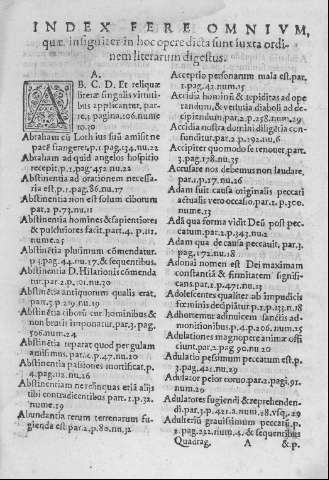 INDEX FERE OMNIVM,
quæ insigniter in hoc opere dicta sunt iuxta ordi-
nem literarum digestus.
A.
A B. C. D. Et reliquæ
literæ singulis virtuti-
bus applicantur, par-
te.3 pagina.106.nume
ro.30
Abraham cũ Loth ius suũ amisit ne
pacē frangeret.p.1.pag.134.nu.22
Abraham ad quid angelos hospitio
recepit.p.3.pag.452.nu.22
Abstinentia ad orationem necessa-
ria est.p.1.pag.86.nu.17
Abstinentia non est solum ciborum
par.2.p.73.nu.11
Abstinentia homines & sapientiores
& pulchriores facit.part.4.p.111.
nume.25
Abstinētia plurimum cōmendatur.
p.3.pag.44.nu.17.& sequentibus.
Abstinētia D. Hilarionis cōmenda
tur.par.2.p.101.nu.30
Abstinētia antiquorum qualis erat.
par.3.p.219.nu.19
Abstinētia ciborũ cur hominibus &
non brutis imponatur.par.3.pag.
506.num.24
Abstinētia reparat quod per gulam
amisimus.par.1.p.47.nu.20
Abstinentia pasiones mortificat.p.
4.pag.112.nu.16
Abstinentiam nerelinquas etiā aliis
tibi contradicentibus part.1.p.32.
nume.19
Abundantia rerum terrenarum fu-
gienda est par.2.p.80.nu.32
Acceptio personarum mala est.par.
1.pag.43.num.15
Accidia hominũ & tepiditas ad ope
randum, & vehitur a diaboli ad de-
cipiendum.par.2.p.258.num.29
Accidia nostra domini diligētia con-
funditur.par.2.p.192.nu.6
Accipiter quomodo se renouet.part.
3.pag.178.nu.35
Accusare nos debemus non laudare,
par.1.p.17.nu.26
Adam suit causa originalis peccati
actualis vero occasio.par.1.p.300.
nume.13
Adā qua forma vidit Deũ post pec-
catum.par.2.p.343.nu.2
Adam qua de causa peccauit.par.3.
pag.172.nu.18
Adonai nomen est Dei maximam
constantiā & firmitatem signifi-
cans.par.1.p.471.nu.13
Adolescentes qualiter ab impudicis
fœminis decipitur.p.1.p.133.n.18
Adhortemur adinuicem sanctis ad-
monitionibus.p.4.p.206.num.15
Adulationes magnopere animæ offi
ciunt.par.3.pag.90.nu.20
Adulatio pessimum peccatum est.p.
3.pag.421.nu.29
Adulator peior coruo.par.2.pagi.91.
num.29
Adulatores fugiendi & reprehenden-
di.par.3.p.421.a.num.28.vsq;.29
Adulteriũ grauissimum peccatũ.p.
2.pag.232.num.4.& sequentibus
Quadrag. A &.p.